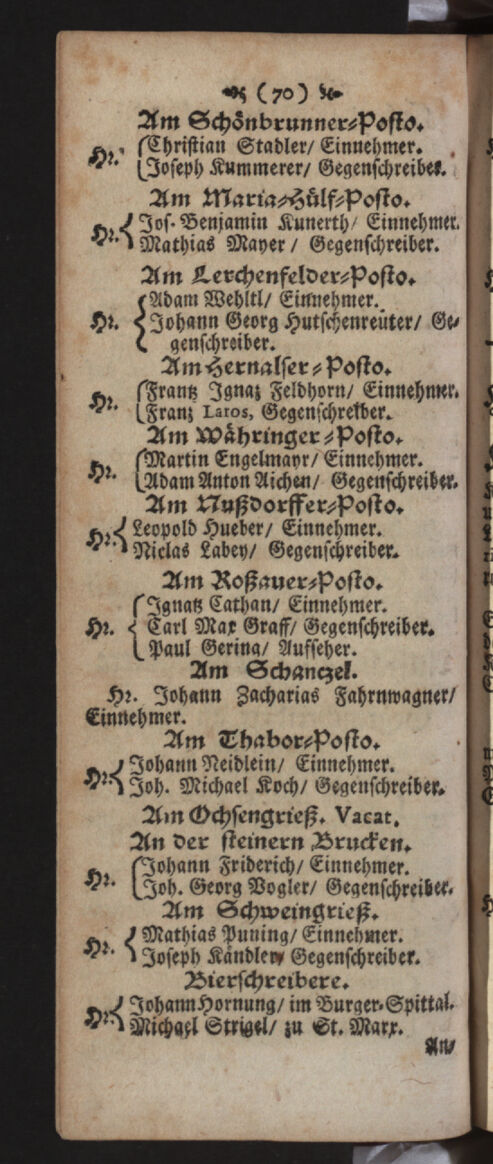 (70)
Am Schönbrunner=Posto.
Hr. Christian Stadler/ Einnehmer.
Joseph Kummerer/ Gegenschreiber.
Am Maria=Hülf=Posto.
Hr. Jos. Benjamin Kunerth/ Einnehmer.
Mathias Mayer/ Gegenschreiber.
Am Lerchenfelder=Posto.
Adam Wehltl/ Einnehmer.
Hr. Johann Georg Hutschenreuter/ Ge=
genschreiber.
Am Hernalser=Posto.
Hr. Frantz Ignaz Feldhorn/ Einnehmer.
Franz Laros, Gegenschreiber.
Am Währinger=Posto.
Hr. Martin Engelmayr/ Einnehmer.
Adam Anton Aichen/ Gegenschreiber.
Am Nußdorffer=Posto.
Hr. Leopold Hueber/ Einnehmer.
Niclas Labey/ Gegenschreiber.
Am Roßauer=Posto.
Ignatz Cathan/ Einnehmer.
Hr. Carl Max Graff/ Gegenschreiber.
Paul Gering/ Aufseher.
Am Schanczel.
Hr. Johann Zacharias Fahrnwagner/
Einnehmer.
Am Thabor=Posto.
Hr. Johann Neidlein/ Einnehmer.
Joh. Michael Koch/ Gegenschreiber.
Am Ochsengrieß. Vacat.
An der steinern Brucken.
Hr. Johann Friderich/ Einnehmer.
Joh. Georg Vogler/ Gegenschreiber.
Am Schweingrieß.
Hr. Mathias Puning/ Einnehmer.
Joseph Kändler/ Gegenschreiber.
Bierschreibere.
Hr. Johann Hornung/ im Burger=Spittal.
Michael Strigel/ zu St. Marx.
An=